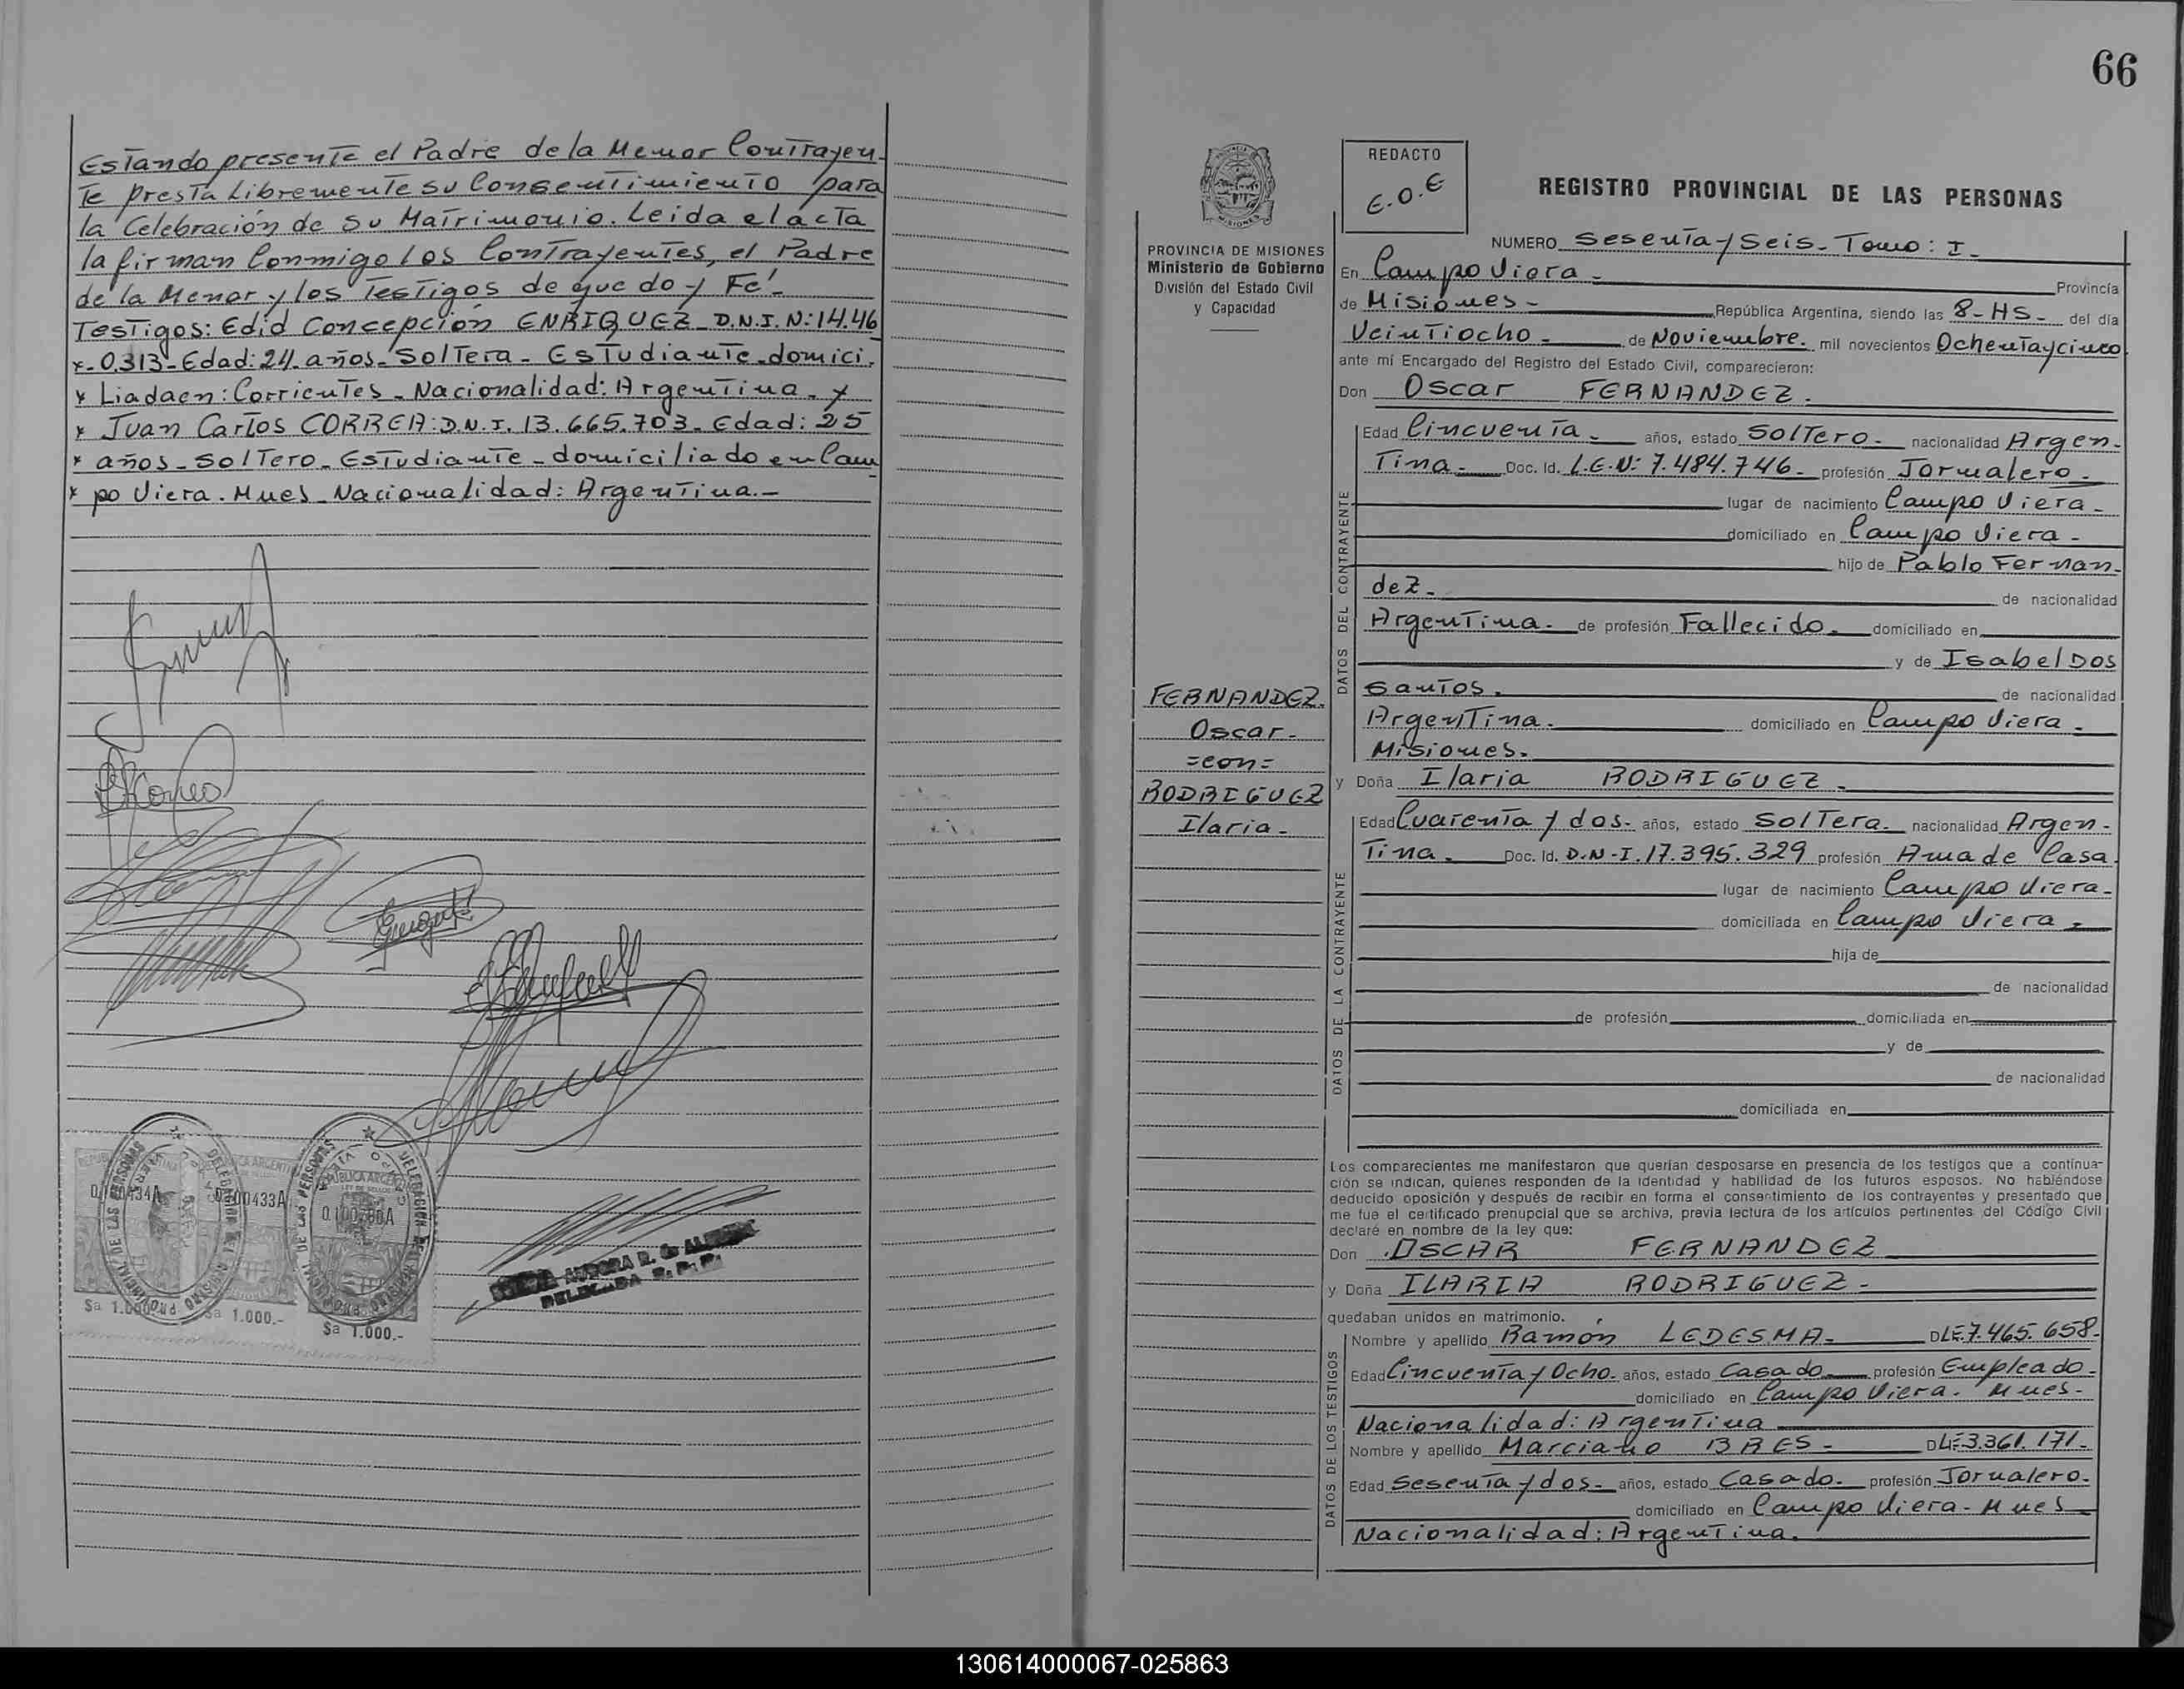 Estando presente el Padre de la Menor Contrayen-
te presta Libremente su Consentimiento para
la Celebración de su Matrimonio. Leida el acta
la firman Conmigo los Contrayentes, el Padre
de la Menor y los Testigos de que doy Fé.-
Testigos: Edid Concepción ENRIQUEZ - D.N.I. N: 14.46
x-0.313-Edad: 24 años - Soltera - Estudiante - domici-
x Liadaen: Corrientes - Nacionalidad: Argentina - y
x Juan Carlos CORREA: D.N.I. 13.665.703. Edad: 25
x años - Soltero - Estudiante - domiciliado en Cam
x po Viera. Mnes - Nacionalidad: Argentina.-
0.100433A
Sa 1.000.-
Sa 1.000.-
AURORA R. G.
DELEGADA R. P. P.
66
PROVINCIA DE MISIONES
Ministerio de Gobierno
División del Estado Civil
y Capacidad
FERNANDEZ.
Oscar.-
=con=
RODRIGUEZ
Ilaria.-
REDACTO
E.O.E
REGISTRO PROVINCIAL DE LAS PERSONAS
NUMERO Sesenta y Seis - Tomo: I -
En Campo Viera - Provincia
de Misiones - República Argentina, siendo las 8-HS- del día
Veintiocho - de Noviembre. mil novecientos Ochenta y cinco
ante mí Encargado del Registro del Estado Civil, comparecieron:
Don Oscar FERNANDEZ.
DATOS DEL CONTRAYENTE
Edad Cincuenta - años, estado Soltero - nacionalidad Argen-
tina - Doc. Id. L.E.N: 7.484.746 - profesión Jornalero -
lugar de nacimiento Campo Viera -
domiciliado en Campo Viera -
hijo de Pablo Fernan-
dez - de nacionalidad
Argentina - de profesión Fallecido - domiciliado en
y de Isabel Dos
Santos. de nacionalidad
Argentina - domiciliado en Campo Viera -
Misiones.
y Doña Ilaria RODRIGUEZ -
DATOS DE LA CONTRAYENTE
Edad Cuarenta y dos - años, estado Soltera - nacionalidad Argen-
tina - Doc. Id. D.N-I. 17.395.329 profesión Ama de Casa.
lugar de nacimiento Campo Viera -
domiciliada en Campo Viera -
hija de
de nacionalidad
de profesión domiciliada en
y de
de nacionalidad
domiciliada en
Los comparecientes me manifestaron que querían desposarse en presencia de los testigos que a continua-
ción se indican, quienes responden de la identidad y habilidad de los futuros esposos. No habiéndose
deducido oposición y después de recibir en forma el consentimiento de los contrayentes y presentado que
me fue el certificado prenupcial que se archiva, previa lectura de los artículos pertinentes del Código Civil
declaré en nombre de la ley que:
Don OSCAR FERNANDEZ
y Doña ILARIA RODRIGUEZ -
quedaban unidos en matrimonio.
DATOS DE LOS TESTIGOS
Nombre y apellido Ramón LEDESMA - DLE 7.465.658 -
Edad Cincuenta y Ocho - años, estado Casado - profesión Empleado -
domiciliado en Campo Viera - Mnes -
Nacionalidad: Argentina
Nombre y apellido Marciano BRES - DLE 3.361.171 -
Edad Sesenta y dos - años, estado Casado - profesión Jornalero -
domiciliado en Campo Viera - Mnes
Nacionalidad: Argentina.
130614000067-025863